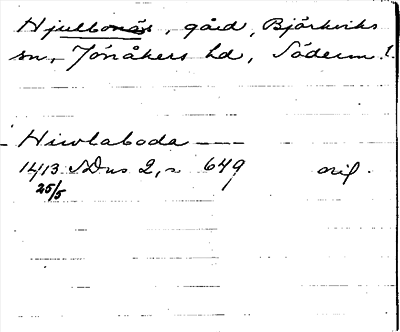 Hjulbonäs, gård, Björkviks
sn, Jönåkers hd, Söderm. l.
Hiwlaboda
1413 SD ns 2, n 649 orig.
25/5